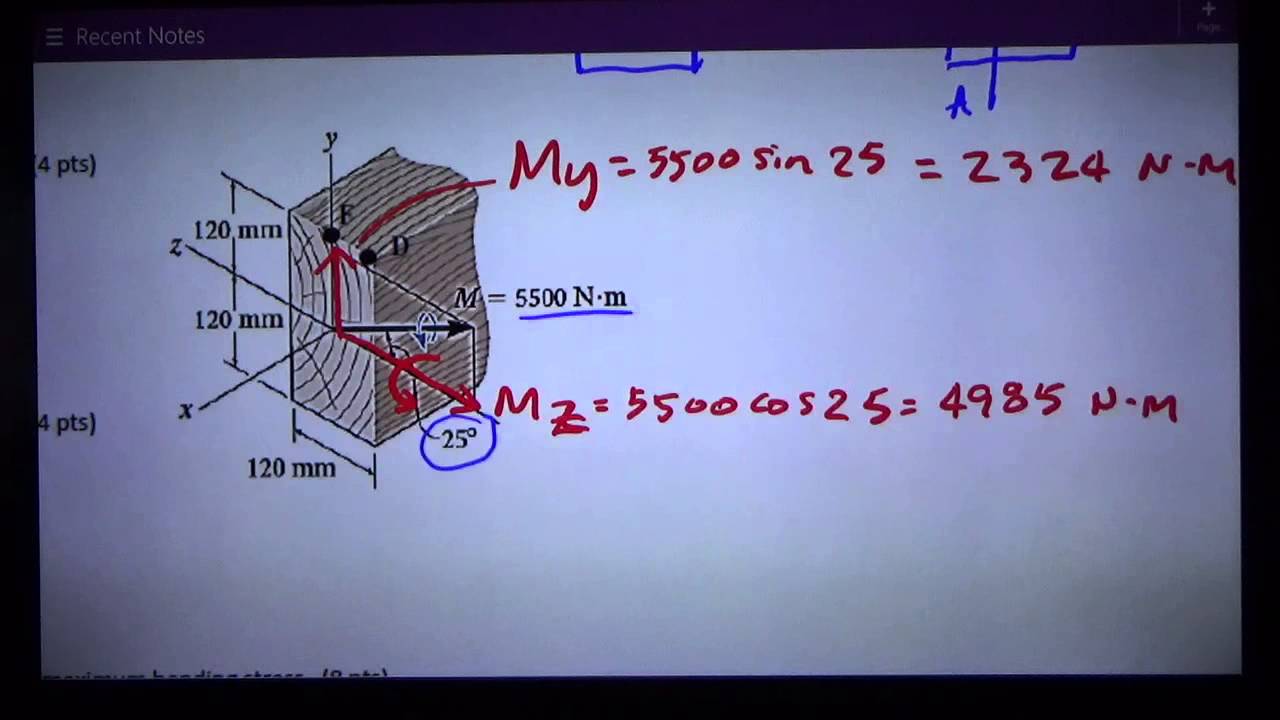 Recent Notes
+
Page
A
(4 pts)
My = 5500 sin 25 = 2324 N·M
y
E
120 mm
D
z
M = 5500 N·m
120 mm
Mz = 5500 cos 25 = 4985 N·M
x
4 pts)
25°
120 mm
maximum bending stress. (8 pts)